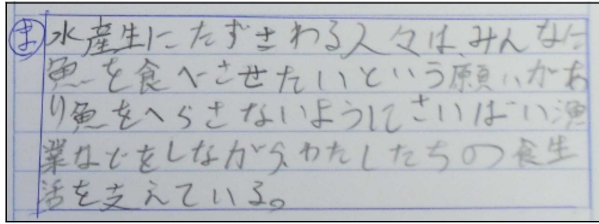 ま 水産生にたずさわる人々は、みんなに
魚を食べさせたいという願いがあ
り魚をへらさないようにしてさいばい漁
業などをしながら、わたしたちの食生
活を支えている。